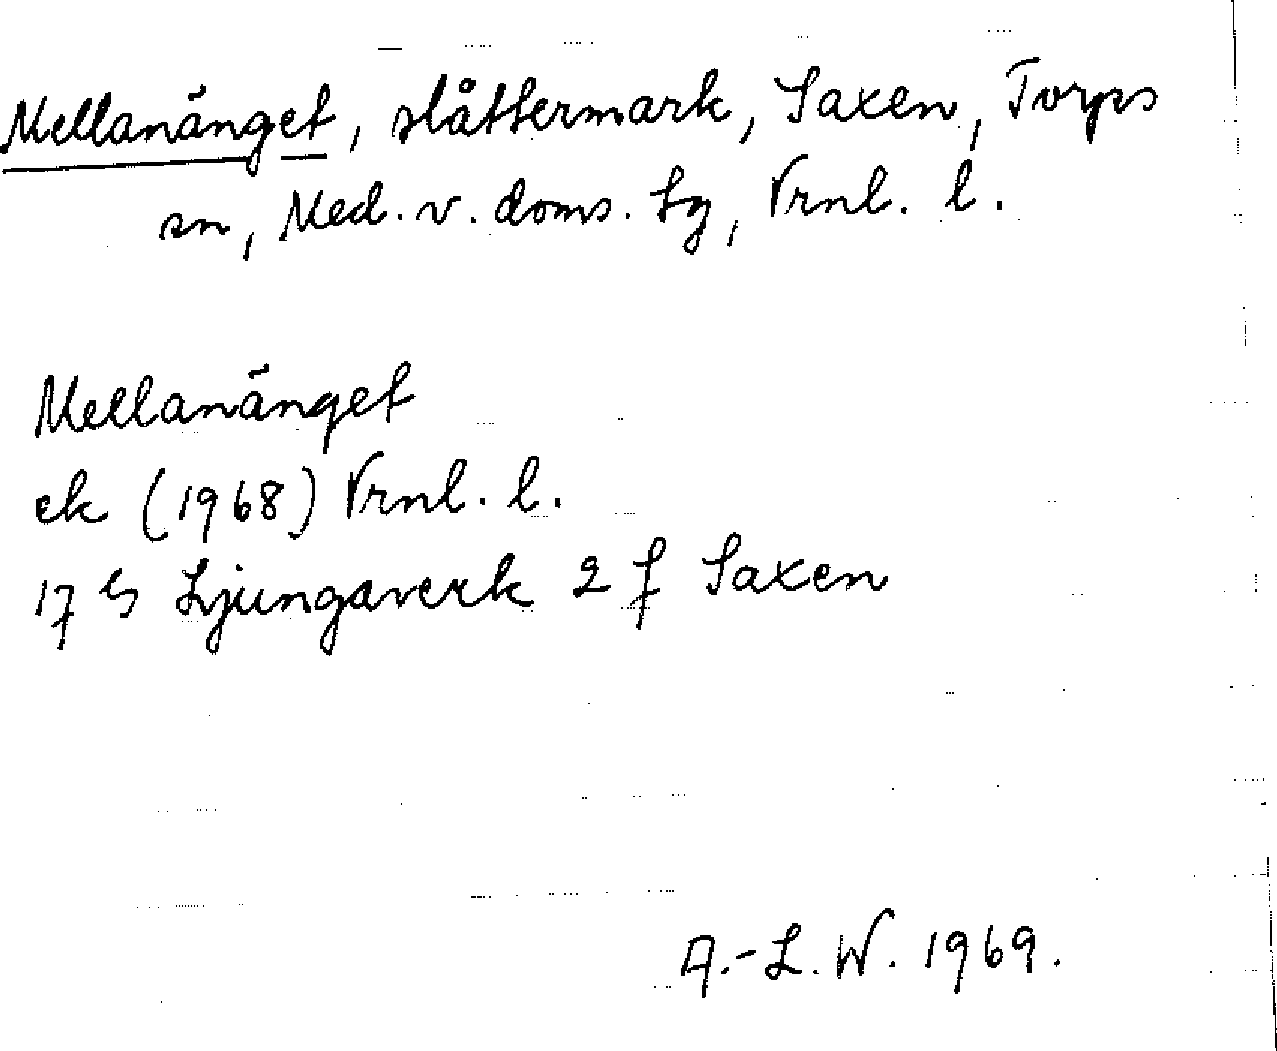 Mellanänget, slåttermark, Saxen, Torps
sn, Med. v. doms. tg, Vrnl. l.
Mellanänget
ek (1968) Vrnl. l.
17 G Ljungaverk 2 f Saxen
A.-L. W. 1969.